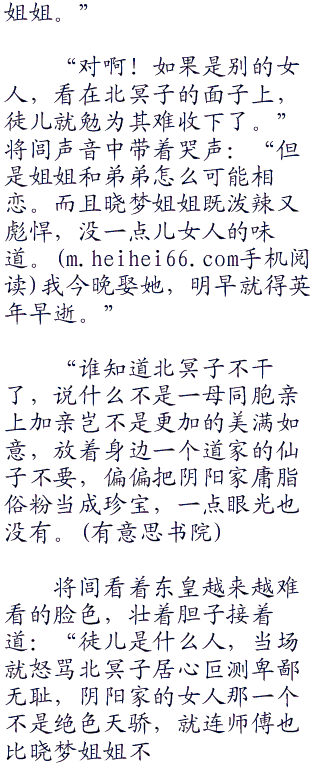 姐姐。”
“对啊！如果是别的女
人，看在北冥子的面子上，
徒儿就勉为其难收下了。”
将闾声音中带着哭声：“但
是姐姐和弟弟怎么可能相
恋。而且晓梦姐姐既泼辣又
彪悍，没一点儿女人的味
道。(m.heihei66.com手机阅
读)我今晚娶她，明早就得英
年早逝。”
“谁知道北冥子不干
了，说什么不是一母同胞亲
上加亲岂不是更加的美满如
意，放着身边一个道家的仙
子不要，偏偏把阴阳家庸脂
俗粉当成珍宝，一点眼光也
没有。(有意思书院)
将闾看着东皇越来越难
看的脸色，壮着胆子接着
道：“徒儿是什么人，当场
就怒骂北冥子居心叵测卑鄙
无耻，阴阳家的女人那一个
不是绝色天骄，就连师傅也
比晓梦姐姐不